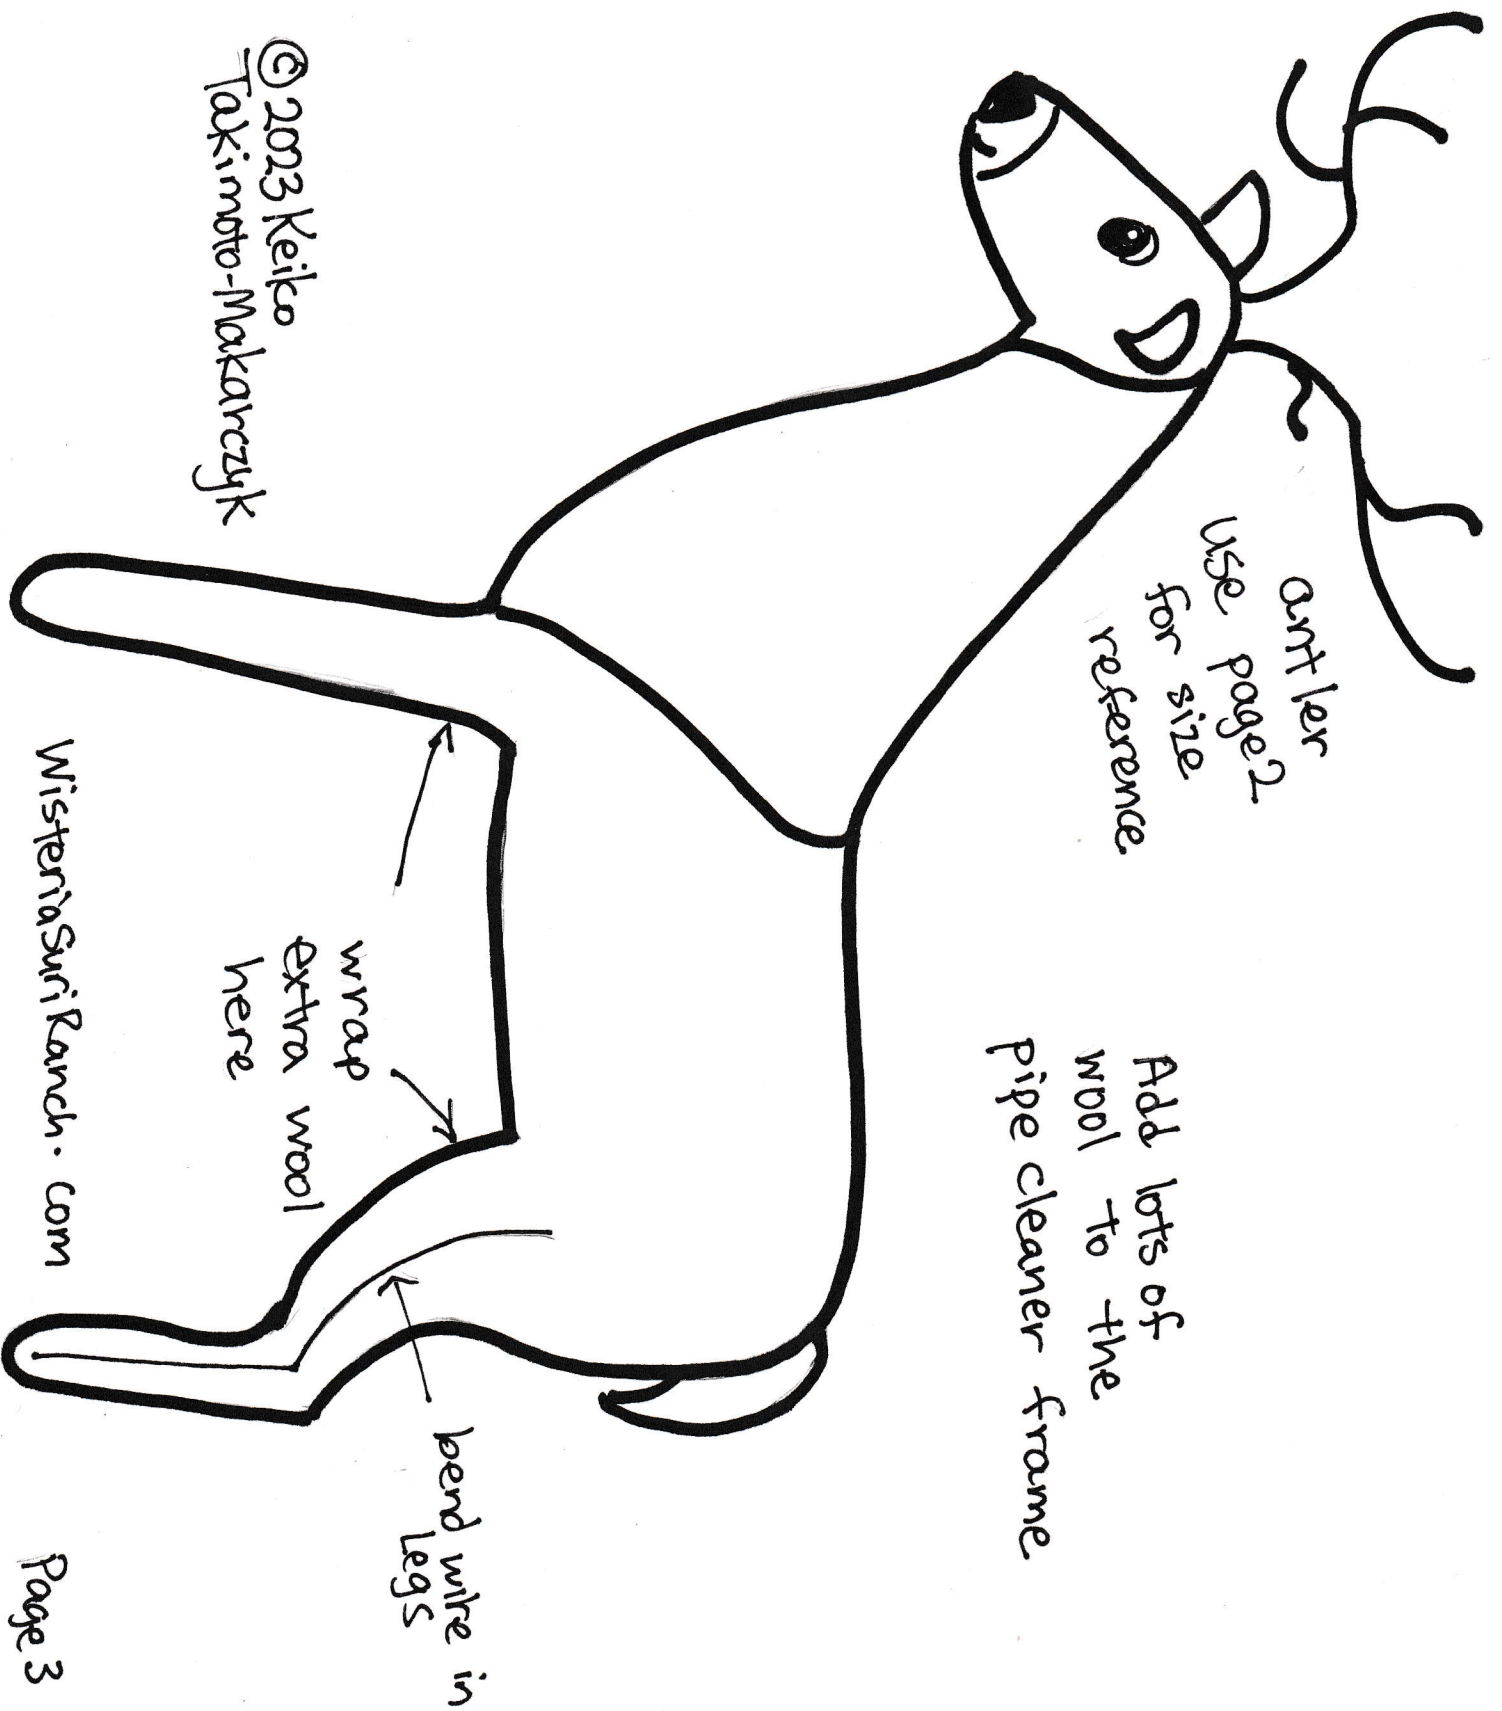 antler
use page2
for size
reference
Add lots of
wool to the
pipe cleaner frame
wrap
extra wool
here
bend wire in
Legs
© 2023 Keiko
Takimoto-Makarczyk
WisteriaSuriRanch.com
Page 3